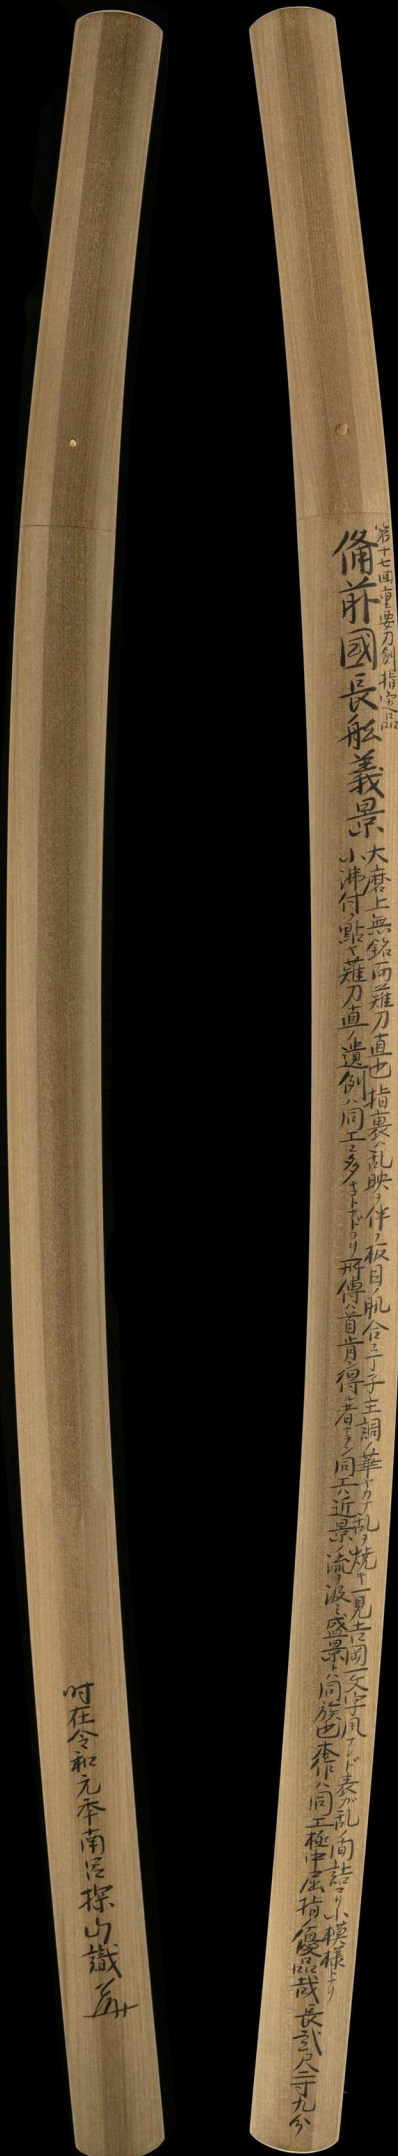 第十七回重要刀剣指定品
備前國長舩義景
大磨上無銘而薙刀直也指裏ハ乱映ヲ伴ノ板目ノ肌合ニ丁子主調ノ華ヤカナ乱ヲ焼キ一見吉岡一文字風ナレド表ガ乱ノ間詰マリ小模様トナリ
小沸付ク點ヤ薙刀直ノ遺例ハ同工ニ多キトコロヨリ所傳ハ首肯シ得ル者ナラン同工ハ近景ノ流ヲ汲ミ盛景トハ同族也本作ハ同工極中屈指ノ優品哉長弐尺二寸九分
時在令和元年南呂探山識